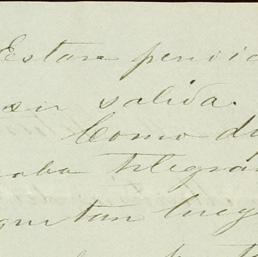 Estan pendi
sin salida.
Como di
aba telegra
que tan lueg